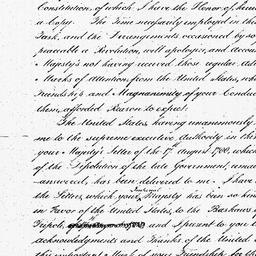 Constitution of which I have the Honor of, here
a Copy. The Time necessarily employed in the
Task, and the Arrangements occasioned by so
peaceable a Revolution, will apologize, and account
Majesty's not having received those regular ad
Marks of Attention from the United States, wh
Friendship and Magnanimity of your Conduc
them, afforded Reason to expect.
The United States, having unanimously
me to the supreme executive Authority in this
your Majesty's Letter of the 17th August 1788, which
of the Dissolution of the late Government, rema
answered, has been delivered to me. I have
the Letters, which your Majesty has been so kind
in Favor of the United States, to the Bashaws of
Tripoli, and I present to you the
acknowledgments and Thanks of the United S
this important Mark of your Friendship for the